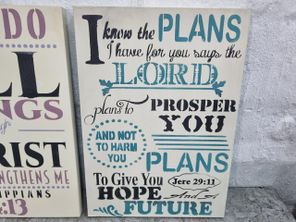 DO
LL
NGS
RIST
ENGTHENS ME
IPPIANS
:13
I know the PLANS
I have for you says the
LORD
plans to PROSPER
YOU
AND NOT
TO HARM
YOU
PLANS
To Give You Jere 29:11
HOPE And a
FUTURE